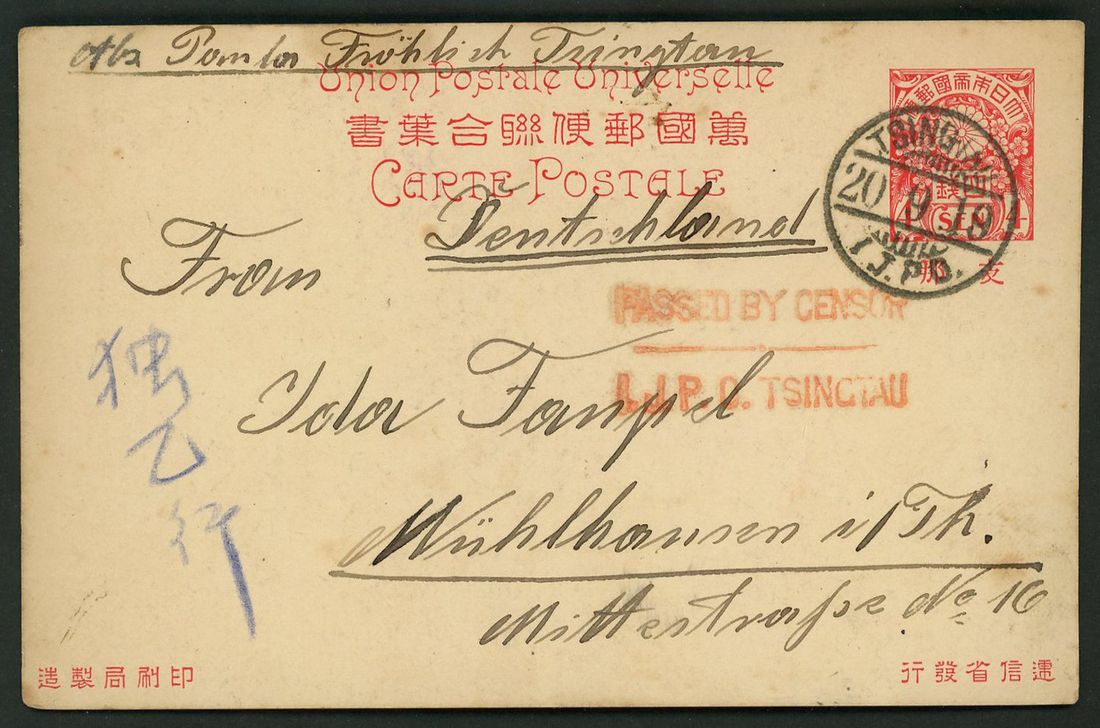 Abs. Paula Fröhlich Tsingtau
Union Postale Universelle
書葉合聯便郵國萬
CARTE POSTALE
郵國帝本日大
錢
SEN
支那
TSINGTAU
20.9.18
I.J.P.O.
Deutschland
Frau
PASSED BY CENSOR
I.J.P.O. TSINGTAU
Ida Fampel
独乙行
Mühlhausen i/Th.
Mittelstraße No 16
造製局刷印
行發省信遞